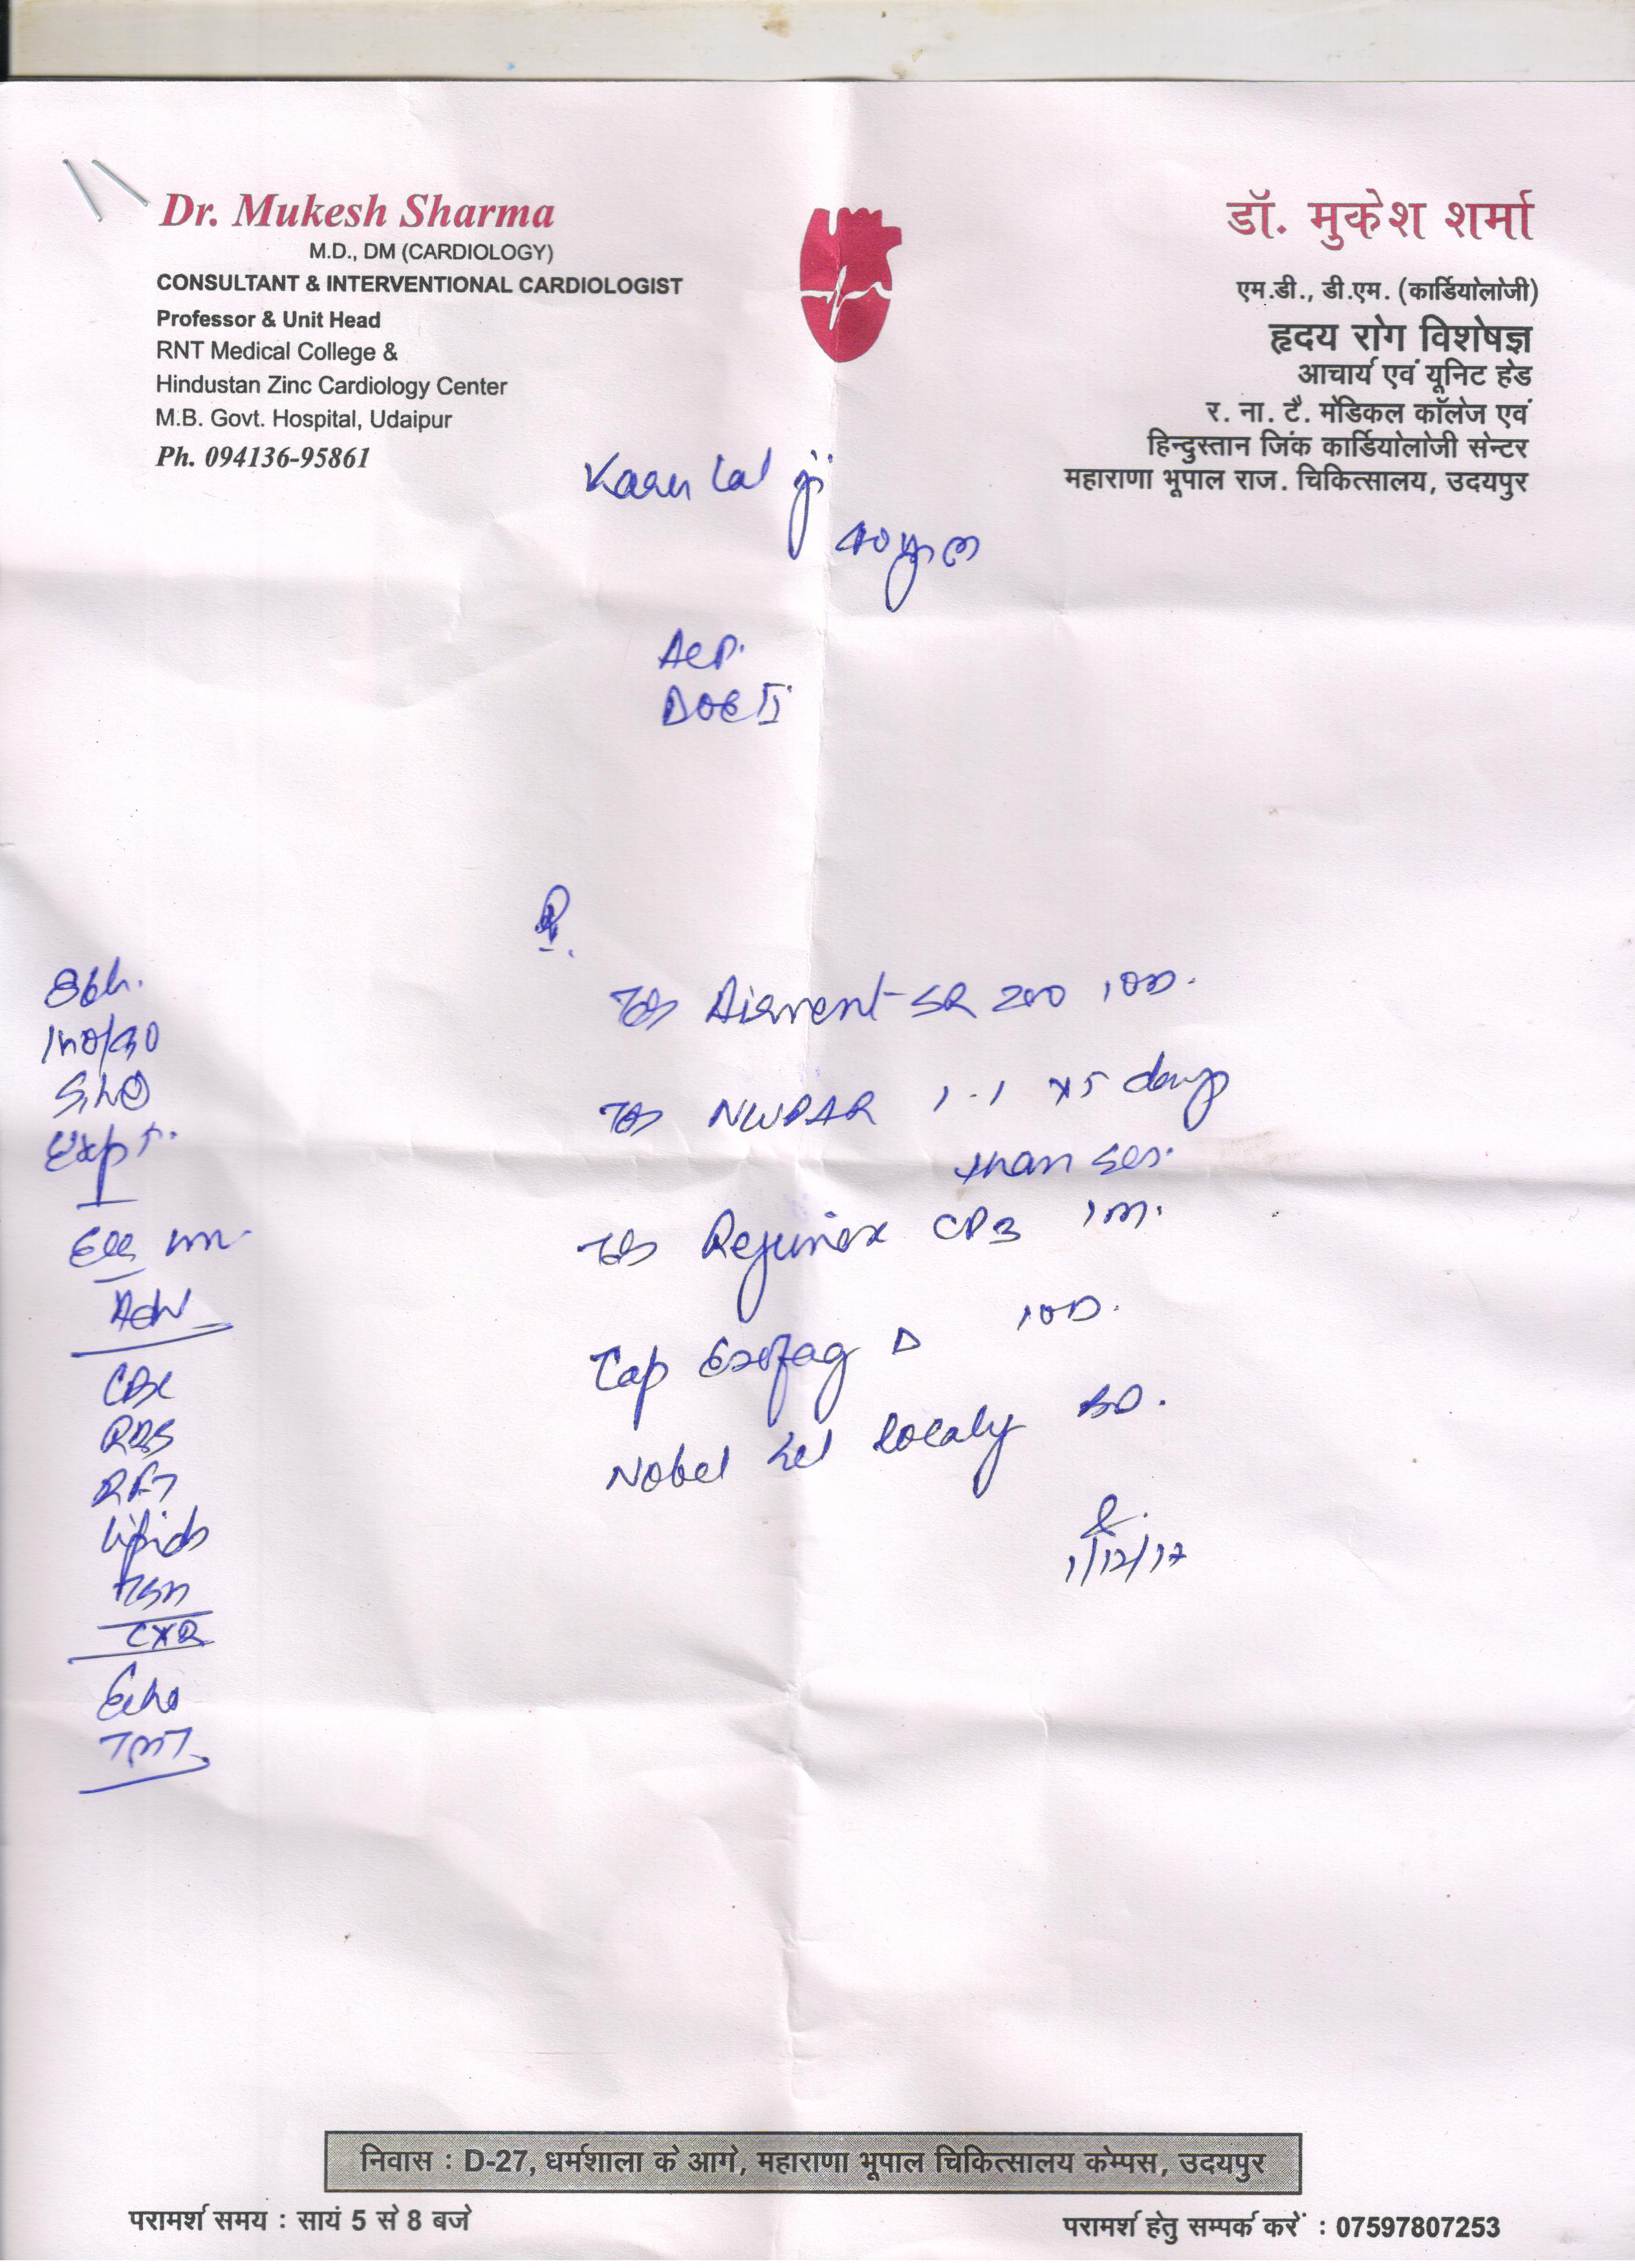 Dr. Mukesh Sharma
M.D., DM (CARDIOLOGY)
CONSULTANT & INTERVENTIONAL CARDIOLOGIST
Professor & Unit Head
RNT Medical College &
Hindustan Zinc Cardiology Center
M.B. Govt. Hospital, Udaipur
Ph. 094136-95861
डॉ. मुकेश शर्मा
एम.डी., डी.एम. (कार्डियोलोजी)
हृदय रोग विशेषज्ञ
आचार्य एवं यूनिट हेड
र. ना. टै. मेडिकल कॉलेज एवं
हिन्दुस्तान जिंक कार्डियोलोजी सेन्टर
महाराणा भूपाल राज. चिकित्सालय, उदयपुर
Lal ji
ACP.
DOE II
Tab SR 200 1 OD.
Tab 1-1 x 5 days
than SOS.
Tab Rejunex CD3
Cap Esofag D 1 OD.
Nobel Gel localy BD.
1/12/17
86/m.
CBC
RBS
RFT
Lipids
CXR
Echo
TMT
निवास : D-27, धर्मशाला के आगे, महाराणा भूपाल चिकित्सालय केम्पस, उदयपुर
परामर्श समय : सायं 5 से 8 बजे
परामर्श हेतु सम्पर्क करें : 07597807253